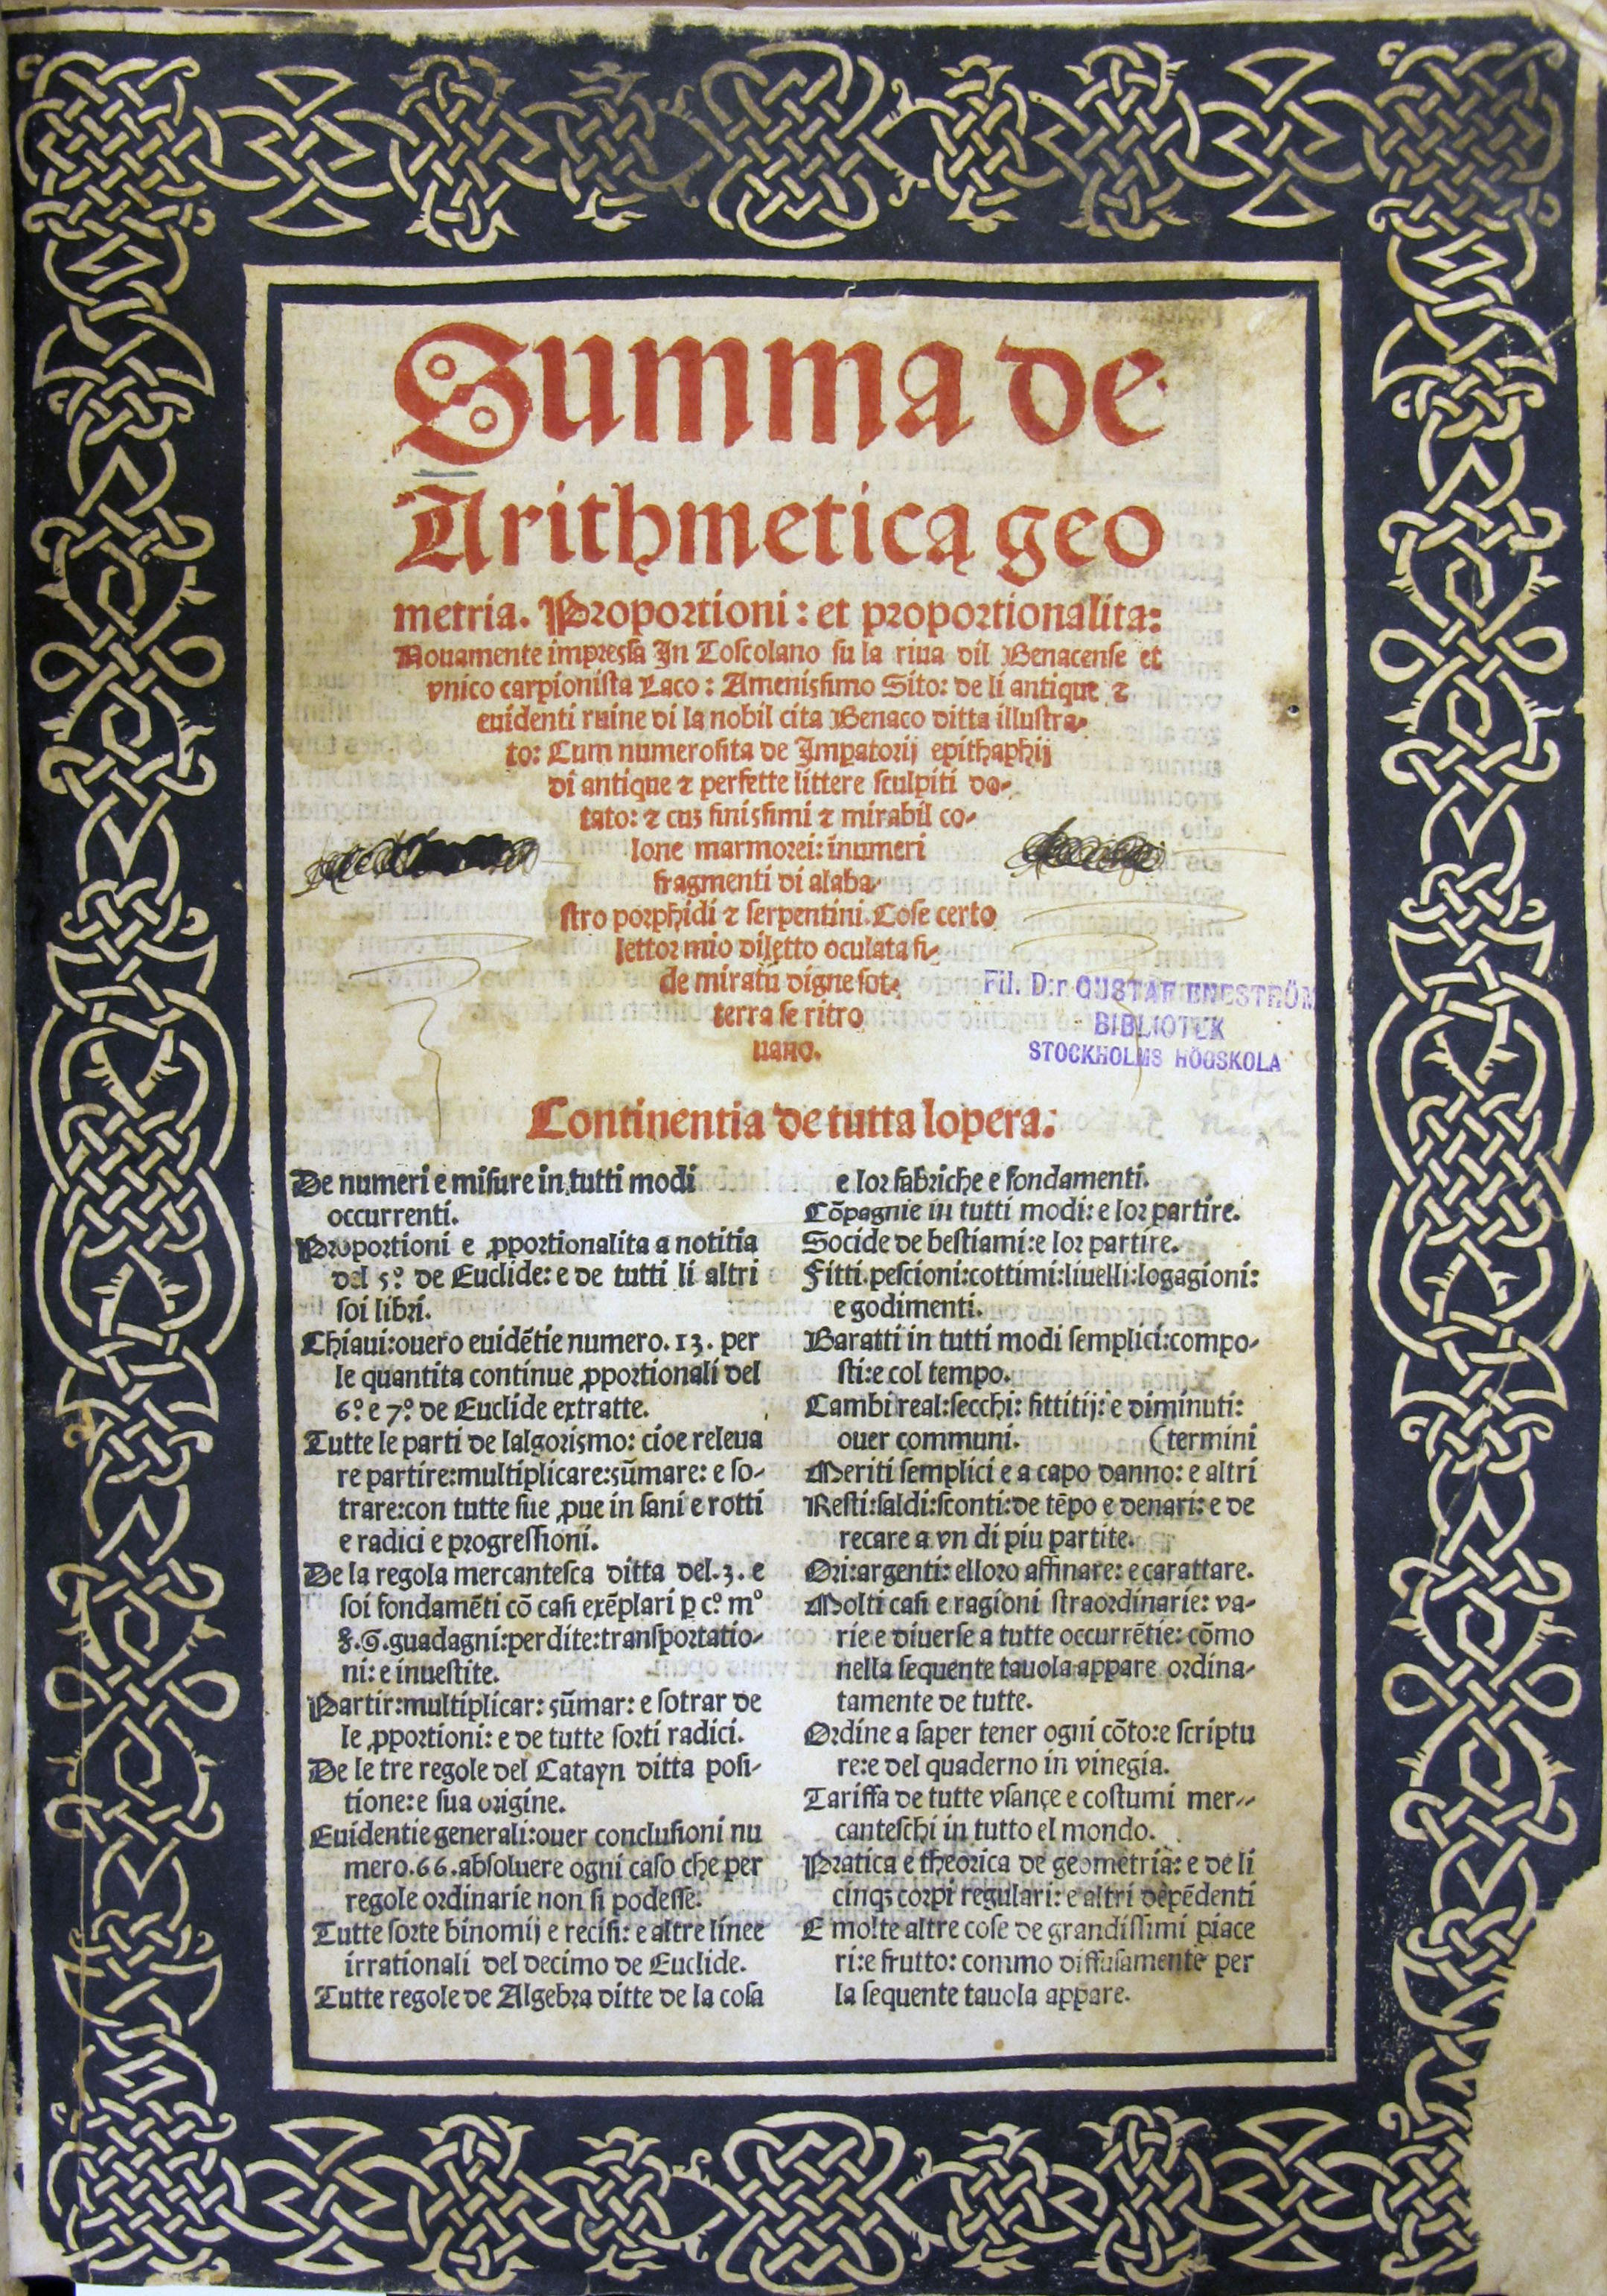 Summa de
Arithmetica geo
metria. Proportioni: et proportionalita:
Nouamente impressa In Toscolano su la riua dil Benacense et
vnico carpionista Laco: Amenissimo Sito: de li antique ⁊
euidenti ruine di la nobil cita Benaco ditta illustra-
to: Cum numerosita de Impatorij epithaphij
di antique ⁊ perfette littere sculpiti do-
tato: ⁊ cuʒ finissimi ⁊ mirabil co-
lone marmorei: inumeri
fragmenti di alaba-
stro porphidi ⁊ serpentini. Cose certo
lettor mio diletto oculata fi-
de miratu digne sot-
terra se ritro
uano.
Fil. D:r GUSTAF ENESTRÖM
BIBLIOTEK
STOCKHOLMS HÖGSKOLA
Continentia de tutta lopera:
De numeri e misure in tutti modi
occurrenti.
Proportioni e ꝓportionalita a notitia
del 5º de Euclide: e de tutti li altri
soi libri.
Chiaui: ouero euidẽtie numero. 13. per
le quantita continue ꝓportionali del
6º e 7º de Euclide extratte.
Tutte le parti de lalgorismo: cioe releua
re partire: multiplicare: sũmare: e so-
trare: con tutte sue ꝓue in sani e rotti
e radici e progressioni.
De la regola mercantesca ditta del. 3. e
soi fondamẽti cõ casi exẽplari ꝑ cº mº
guadagni: perdite: transportatio-
ni: e inuestite.
Partir: multiplicar: sũmar: e sotrar de
le ꝓportioni: e de tutte sorti radici.
De le tre regole del Catayn ditta posi-
tione: e sua origine.
Euidentie generali: ouer conclusioni nu
mero. 66. absoluere ogni caso che per
regole ordinarie non si podesse.
Tutte sorte binomij e recisi: e altre linee
irrationali del decimo de Euclide.
Tutte regole de Algebra ditte de la cosa
e lor fabriche e fondamenti.
Cõpagnie in tutti modi: e lor partire.
Socide de bestiami: e lor partire.
Fitti: pescioni: cottimi: liuelli: logagioni:
e godimenti.
Baratti in tutti modi semplici: compo-
sti: e col tempo.
Cambi real: secchi: fittitij: e diminuti:
ouer communi. (termini
Meriti semplici e a capo danno: e altri
Resti: saldi: sconti: de tẽpo e denari: e de
recare a vn di piu partite.
Ori: argenti: e lloro affinare: e carattare.
Molti casi e ragioni straordinarie: va-
rie e diuerse a tutte occurrẽtie: cõmo
nella sequente tauola appare ordina-
tamente de tutte.
Ordine a saper tener ogni cõto: e scriptu
re: e del quaderno in vinegia.
Tariffa de tutte vsançe e costumi mer-
canteschi in tutto el mondo.
Pratica e theorica de geometria: e de li
cinqʒ corpi regulari: e altri depẽdenti
E molte altre cose de grandissimi piace
ri: e frutto: commo diffusamente per
la sequente tauola appare.